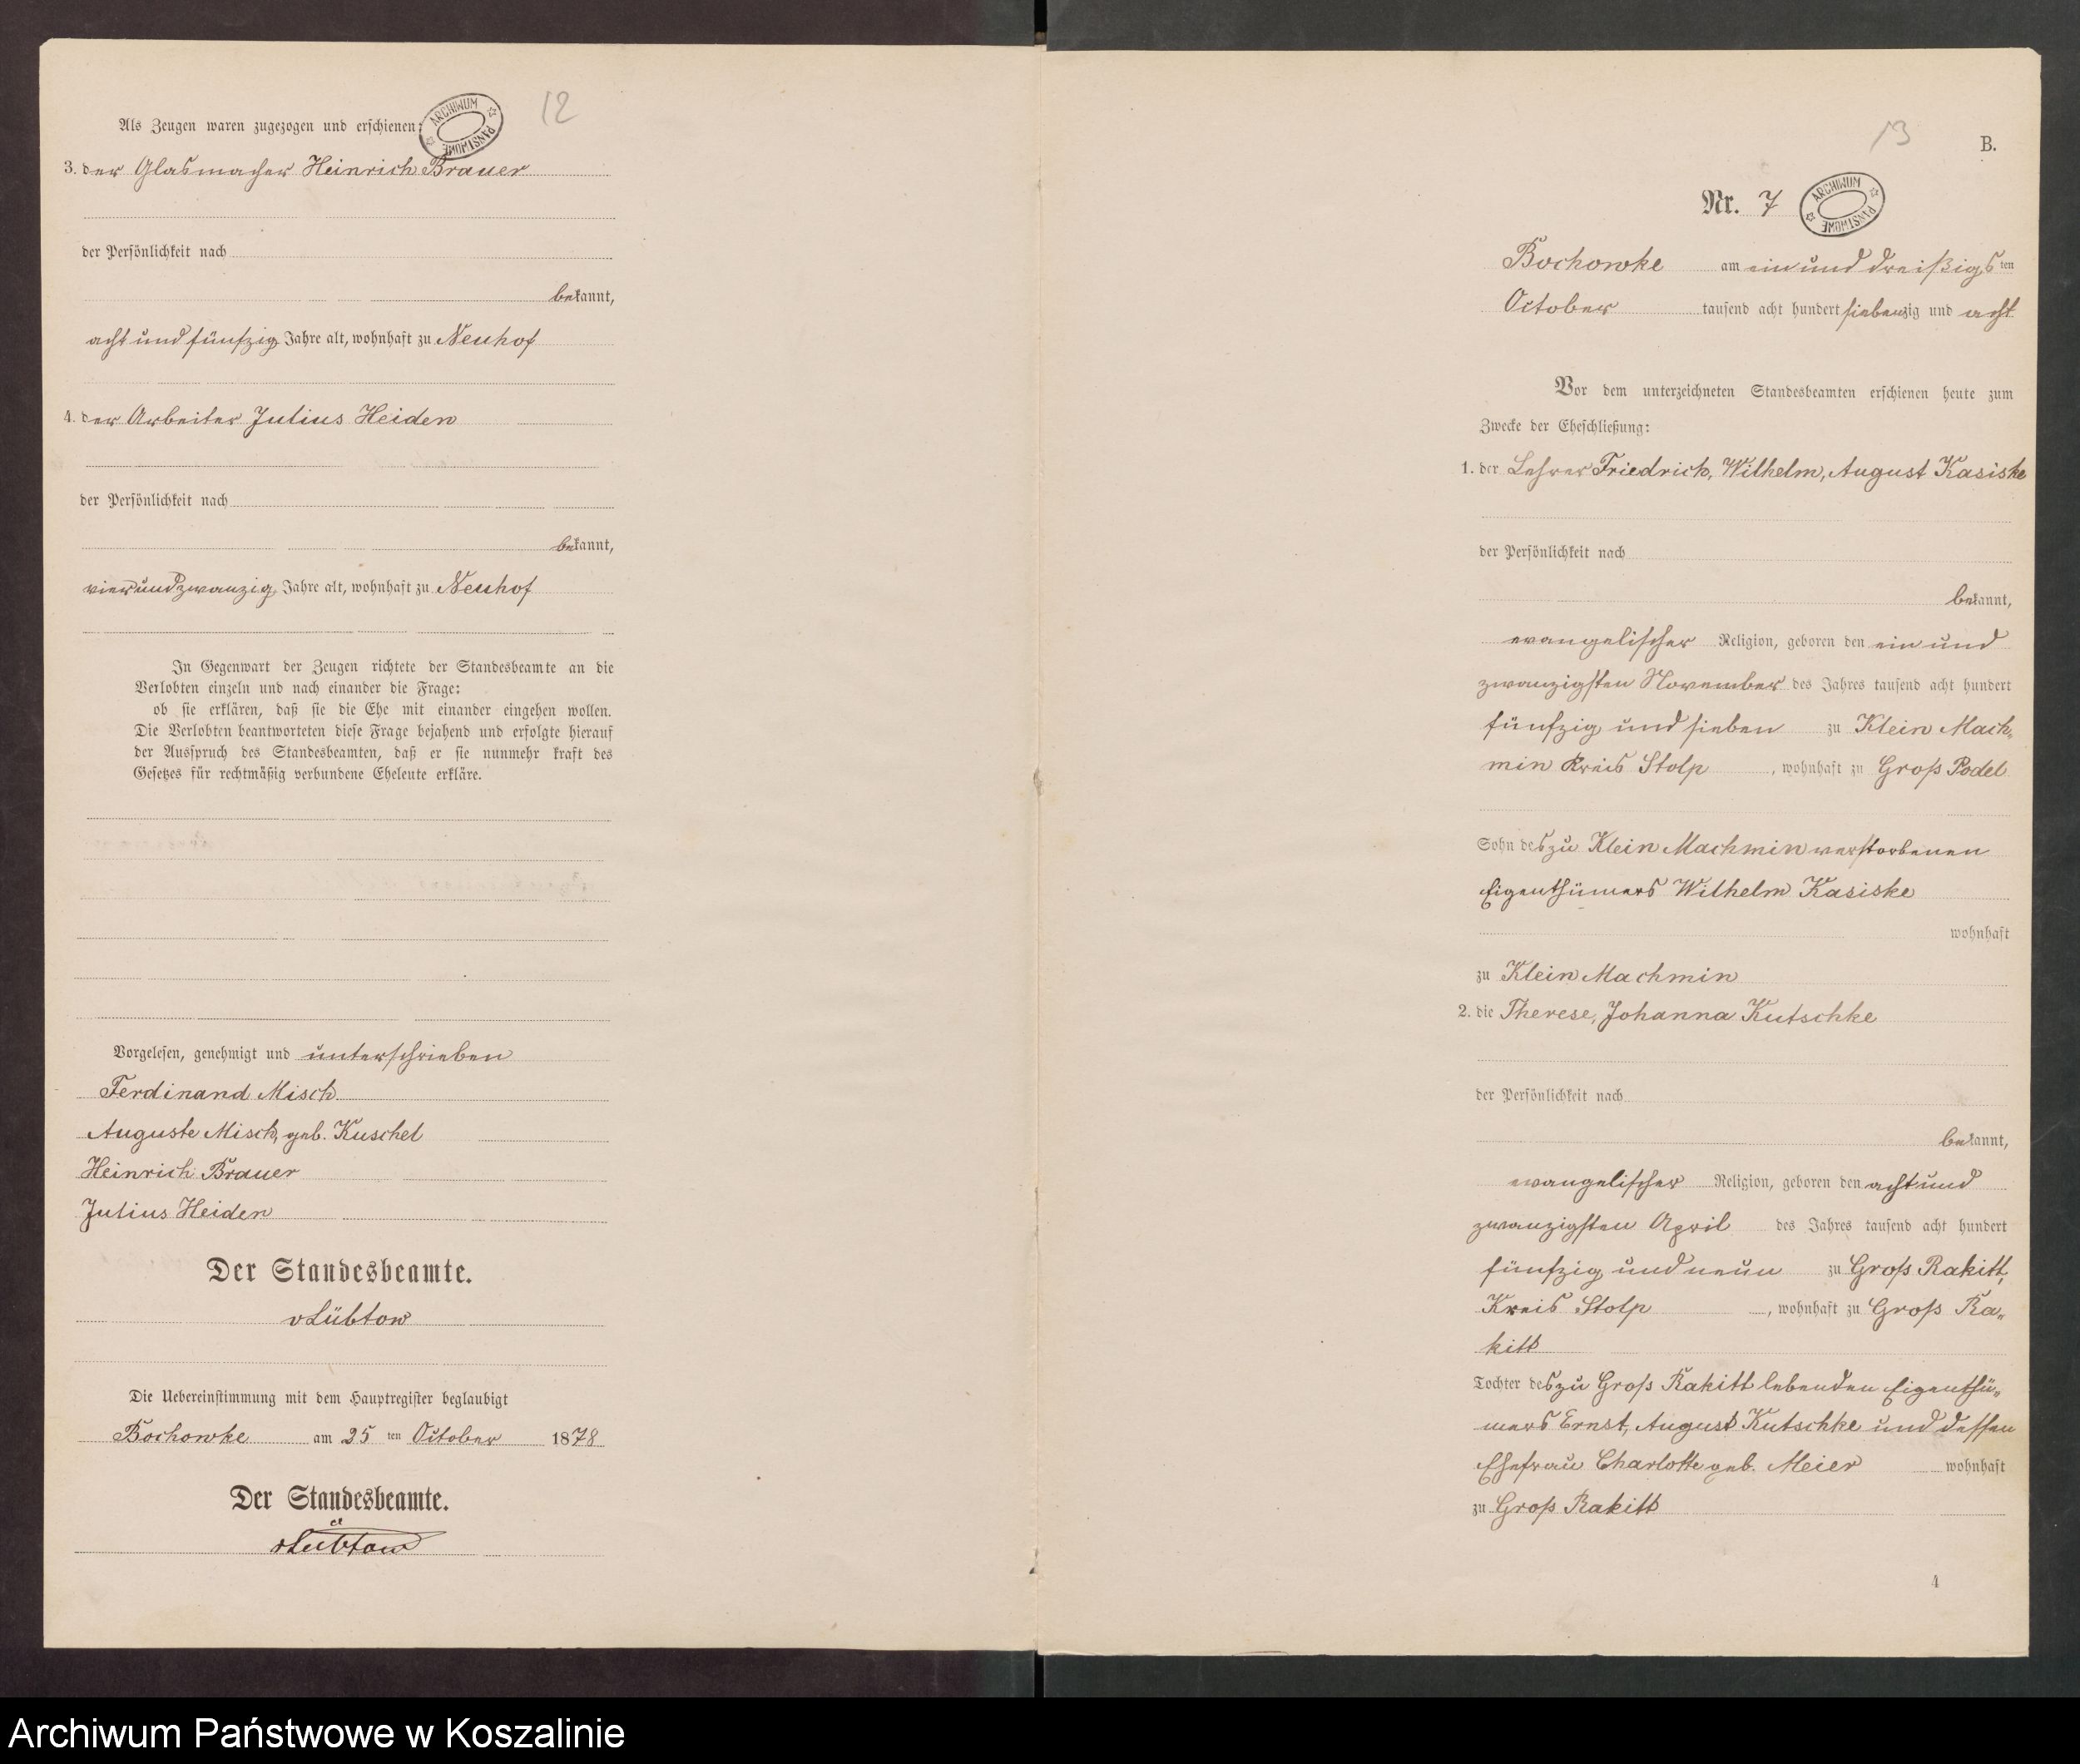 12
Als Zeugen waren zugezogen und erschienen:
ARCHIWUM PAŃSTWOWE
3. der Glasmacher Heinrich Brauer
der Persönlichkeit nach
bekannt,
acht und fünfzig Jahre alt, wohnhaft zu Neuhof
4. der Arbeiter Julius Heiden
der Persönlichkeit nach
bekannt,
vier und zwanzig Jahre alt, wohnhaft zu Neuhof
In Gegenwart der Zeugen richtete der Standesbeamte an die
Verlobten einzeln und nach einander die Frage:
ob sie erklären, daß sie die Ehe mit einander eingehen wollen.
Die Verlobten beantworteten diese Frage bejahend und erfolgte hierauf
der Ausspruch des Standesbeamten, daß er sie nunmehr kraft des
Gesetzes für rechtmäßig verbundene Eheleute erkläre.
Vorgelesen, genehmigt und unterschrieben
Ferdinand Misch
Auguste Misch, geb. Kuschel
Heinrich Brauer
Julius Heiden
Der Standesbeamte.
vLübtow
Die Uebereinstimmung mit dem Hauptregister beglaubigt
Bochowke am 25 ten October 1878
Der Standesbeamte.
vLübtow
13
B.
Nr. 7
ARCHIWUM PAŃSTWOWE
Bochowke am ein und dreißigsten
October tausend acht hundert siebenzig und acht
Vor dem unterzeichneten Standesbeamten erschienen heute zum
Zwecke der Eheschließung:
1. der Lehrer Friedrich, Wilhelm, August Kasiske
der Persönlichkeit nach
bekannt,
evangelischer Religion, geboren den ein und
zwanzigsten November des Jahres tausend acht hundert
fünfzig und sieben zu Klein Mach„
min Kreis Stolp, wohnhaft zu Groß Podel
Sohn des zu Klein Machmin verstorbenen
Eigenthümers Wilhelm Kasiske
wohnhaft
zu Klein Machmin
2. die Therese, Johanna Kutschke
der Persönlichkeit nach
bekannt,
evangelischer Religion, geboren den acht und
zwanzigsten April des Jahres tausend acht hundert
fünfzig und neun zu Groß Rakitt,
Kreis Stolp, wohnhaft zu Groß Ra„
kitt
Tochter des zu Groß Rakitt lebenden Eigenthü„
mers Ernst, August Kutschke und dessen
Ehefrau Charlotte geb. Meier wohnhaft
zu Groß Rakitt
4
Archiwum Państwowe w Koszalinie